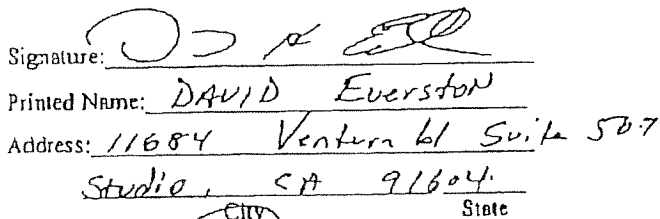 Signature:
Printed Name: DAVID Everston
Address: 11684 Ventura bl Suite 507
Studio, CA 91604
City State